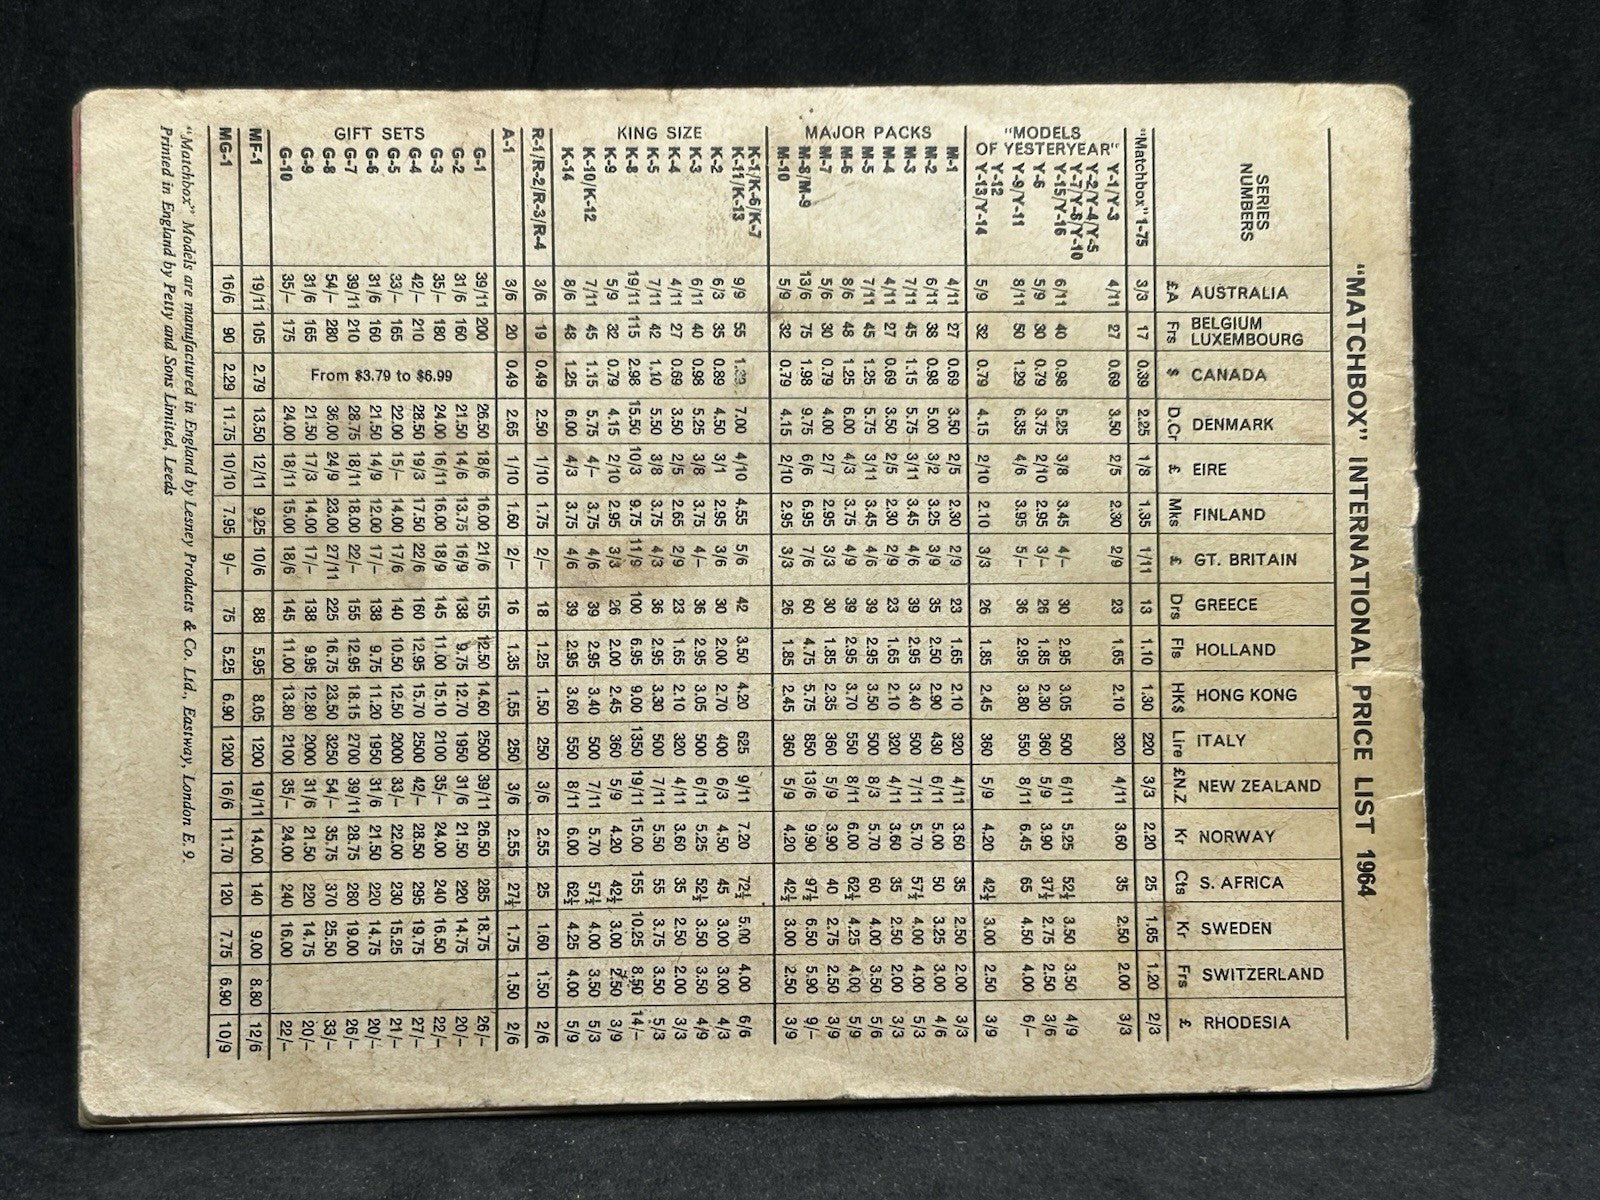 "MATCHBOX" INTERNATIONAL PRICE LIST 1964
SERIES NUMBERS AUSTRALIA BELGIUM LUXEMBOURG CANADA DENMARK EIRE FINLAND GT. BRITAIN GREECE HOLLAND HONG KONG ITALY NEW ZEALAND NORWAY S. AFRICA SWEDEN SWITZERLAND RHODESIA
£A Frs $ D.Cr £ Mks £ Drs Fls HK$ Lire £N.Z Kr Cts Kr Frs £
"Matchbox" 1-75 3/3 17 0.39 2.25 1/8 1.35 1/11 13 1.10 1.30 220 3/3 2.20 25 1.65 1.20 2/3
"MODELS OF YESTERYEAR"
Y-1/Y-3 4/11 27 0.69 3.50 2/5 2.30 2/9 23 1.65 2.10 320 4/11 3.60 35 2.50 2.00 3/3
Y-2/Y-4/Y-5
Y-7/Y-8/Y-10
Y-15/Y-16 6/11 40 0.98 5.25 3/8 3.45 4/- 30 2.95 3.05 500 6/11 5.25 52½ 3.50 3.50 4/9
Y-6 5/9 30 0.79 3.75 2/10 2.95 3/- 26 1.85 2.30 360 5/9 3.90 37½ 2.75 2.50 3/6
Y-9/Y-11 8/11 50 1.29 6.35 4/6 3.95 5/- 36 2.95 3.80 550 8/11 6.45 65 4.50 4.00 6/-
Y-12
Y-13/Y-14 5/9 32 0.79 4.15 2/10 2.10 3/3 26 1.85 2.45 360 5/9 4.20 42½ 3.00 2.50 3/9
MAJOR PACKS
M-1 4/11 27 0.69 3.50 2/5 2.30 2/9 23 1.65 2.10 320 4/11 3.60 35 2.50 2.00 3/3
M-2 6/11 38 0.98 5.00 3/2 3.25 3/9 35 2.50 2.90 430 6/11 5.00 50 3.25 3.00 4/6
M-3 7/11 45 1.15 5.75 3/11 3.45 4/6 39 2.95 3.40 500 7/11 5.70 57½ 4.00 3.50 5/3
M-4 4/11 27 0.69 3.50 2/5 2.30 2/9 23 1.65 2.10 320 4/11 3.60 35 2.50 2.00 3/3
M-5 7/11 45 1.25 5.75 3/11 3.45 4/6 39 2.95 3.50 500 8/3 5.70 60 4.00 3.50 5/6
M-6 8/6 48 1.25 6.00 4/3 3.75 4/9 39 2.95 3.70 550 8/11 6.00 62½ 4.25 4.00 5/9
M-7 5/6 30 0.79 4.00 2/7 2.30 3/3 30 1.85 2.35 360 5/9 3.90 40 2.75 2.50 3/9
M-8/M-9 13/6 75 1.98 9.75 6/6 6.95 7/6 60 4.75 5.75 850 13/6 9.90 97½ 6.50 5.90 9/-
M-10 5/9 32 0.79 4.15 2/10 2.95 3/3 26 1.85 2.45 360 5/9 4.20 42½ 3.00 2.50 3/9
KING SIZE
K-1/K-6/K-7
K-11/K-13 9/9 55 7.00 4/10 4.55 5/6 42 3.50 4.20 625 9/11 7.20 72½ 5.00 4.00 6/6
K-2 6/3 35 0.89 4.50 3/1 2.95 3/6 30 2.00 2.70 400 6/3 4.50 45 3.00 3.00 4/3
K-3 6/11 40 0.98 5.25 3/8 3.75 4/- 36 2.95 3.05 500 6/11 5.25 52½ 3.50 3.00 4/9
K-4 4/11 27 0.69 3.50 2/5 2.65 2/9 23 1.65 2.10 320 4/11 3.60 35 2.50 2.00 3/3
K-5 7/11 42 1.10 5.50 3/8 3.75 4/3 36 2.95 3.30 500 7/11 5.50 55 3.75 3.50 5/3
K-8 19/11 115 2.98 15.50 10/3 9.75 11/9 100 6.95 9.00 1350 19/11 15.00 155 10.25 8.50 14/-
K-9 5/9 32 0.79 4.15 2/10 2.95 3/3 26 2.00 2.45 360 5/9 4.20 42½ 3.00 2.50 3/9
K-10/K-12 7/11 45 1.15 5.75 4/- 3.75 4/6 39 2.95 3.40 500 7/11 5.70 57½ 4.00 3.50 5/3
K-14 8/6 48 1.25 6.00 4/3 3.75 4/6 39 2.95 3.60 550 8/11 6.00 62½ 4.25 4.00 5/9
R-1/R-2/R-3/R-4 3/6 19 0.49 2.50 1/10 1.75 2/- 18 1.25 1.50 250 3/6 2.55 25 1.60 1.50 2/6
A-1 3/6 20 0.49 2.65 1/10 1.60 2/- 16 1.35 1.55 250 3/6 2.55 27½ 1.75 1.50 2/6
GIFT SETS
From $3.79 to $6.99
G-1 39/11 200 26.50 18/6 16.00 21/6 155 12.50 14.60 2500 39/11 26.50 285 18.75 26/-
G-2 31/6 160 21.50 14/6 13.75 16/9 138 9.75 12.70 1950 31/6 21.50 220 14.75 20/-
G-3 35/- 180 24.00 16/11 16.00 18/9 145 11.00 15.10 2100 35/- 24.00 240 16.50 22/-
G-4 42/- 210 28.50 19/3 17.50 22/6 160 12.95 15.70 2500 42/- 28.50 295 19.75 27/-
G-5 33/- 165 22.00 15/- 14.00 17/6 140 10.50 12.50 2000 33/- 22.00 230 15.25 21/-
G-6 31/6 160 21.50 14/9 12.00 17/- 138 9.75 11.20 1950 31/6 21.50 220 14.75 20/-
G-7 39/11 210 28.75 18/11 18.00 22/- 155 12.95 18.15 2700 39/11 28.75 280 19.00 26/-
G-8 54/- 280 36.00 24/9 23.00 27/11 225 16.75 23.50 3250 54/- 35.75 370 25.50 33/-
G-9 31/6 165 21.50 17/3 14.00 17/- 138 9.95 12.80 2000 31/6 21.50 220 14.75 20/-
G-10 35/- 175 24.00 18/11 15.00 18/6 145 11.00 13.80 2100 35/- 24.00 240 16.00 22/-
MF-1 19/11 105 2.79 13.50 12/11 9.25 10/6 88 5.95 8.05 1200 19/11 14.00 140 9.00 8.80 12/6
MG-1 16/6 90 2.29 11.75 10/10 7.95 9/- 75 5.25 6.90 1200 16/6 11.70 120 7.75 6.90 10/9
"Matchbox" Models are manufactured in England by Lesney Products & Co. Ltd., Eastway, London E.9.
Printed in England by Petty and Sons Limited, Leeds